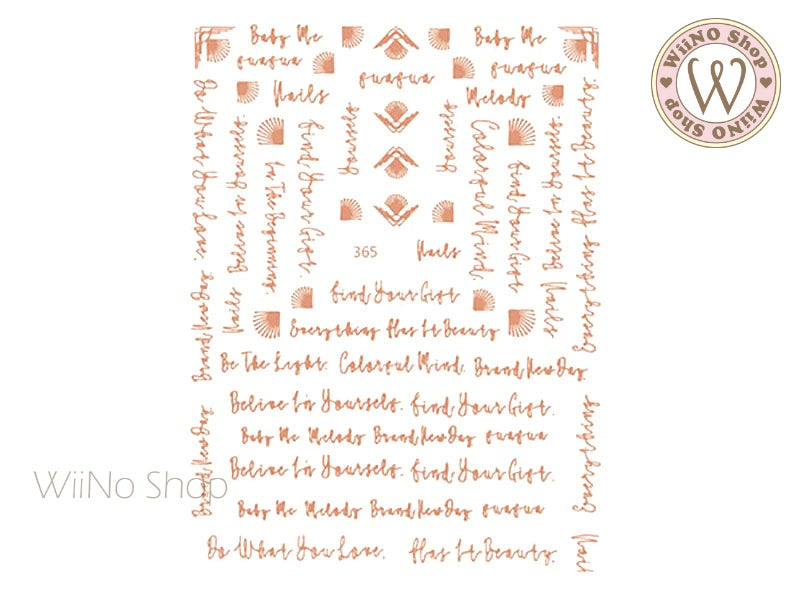 Baby Me
Baby Me
WiiNO Shop
WiiNO Shop
W
Nails
Melody
Do What You Love.
Believe In Yourself.
In The Beginning.
Find Your Gift.
Yourself
Yourself
Colorful Mind.
Find Your Gift
Believe In Yourself.
Everything Has It Beauty
365
Nails
Nails
Nails
Brand New Day
Find Your Gift
Everything Has It Beauty
Be The Light. Colorful Mind. Brand New Day
Believe In Yourself. Find Your Gift.
Baby Me Melody Brand New Day
Believe In Yourself. Find Your Gift.
Baby Me Melody Brand New Day
Brand New Day
Everything
WiiNo Shop
Do What You Love. Has It Beauty.
Nail